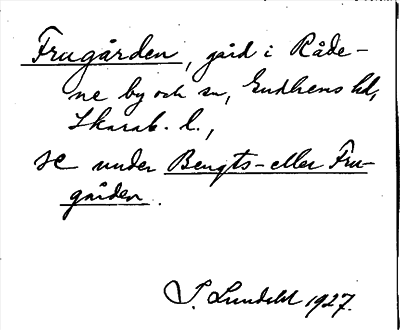 Frugården, gård i Råde-
ne by och sn, Gudhems hd,
Skarab. l.,
se under Bengts- eller Fru-
gården.
S. Lundahl 1927.